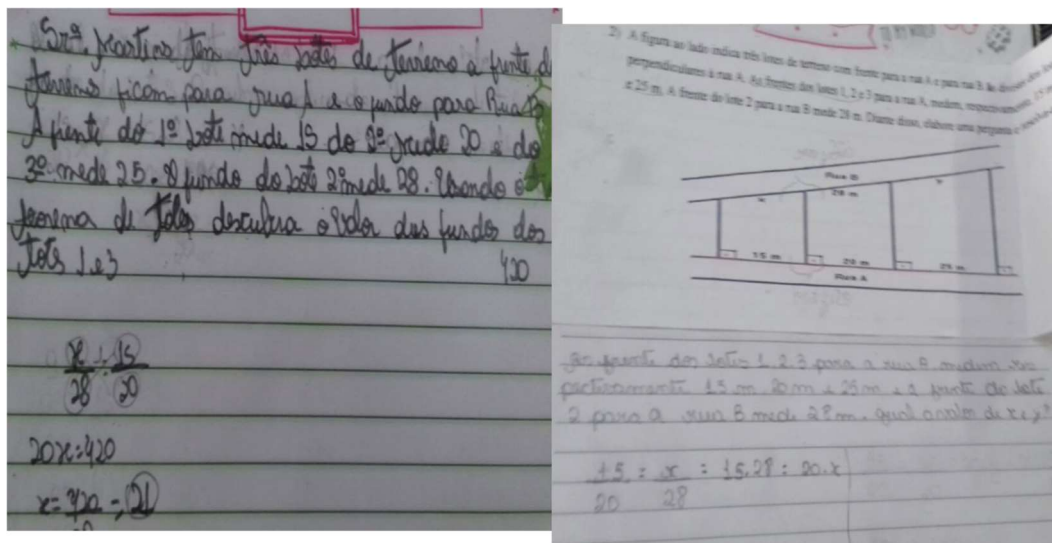 Srª. Martins tem três lotes de terreno a frente d
terreno ficam para rua A e o fundo para Rua B
A frente do 1º Lote mede 15 do 2º mede 20 e do
3º mede 25. O fundo do Lote 2º mede 28. Usando o
teorema de descubra o Valor dos fundos dos
1 e 3
420
x = 15
28 20
20x = 420
x = 420 = 21
2) A figura ao lado indica três lotes de terreno com frente para a rua A e para rua B. As divisas dos
perpendiculares à rua A. As frentes dos lotes 1, 2 e 3 para a rua A, medem, respectivamente, 15 m
e 25 m. A frente do lote 2 para a rua B mede 28 m. Diante disso, elabore uma pergunta e
Rua B
x
28 m
y
15 m
20 m
25 m
Rua A
frente dos lotes 1, 2, 3 para a rua medem res
pectivamente 15 m, 20 m e 25 m e a frente do lote
2 para a rua B mede 28 m. qual o valor de x e y?
15 = x = 15.28 = 20.x
20 28